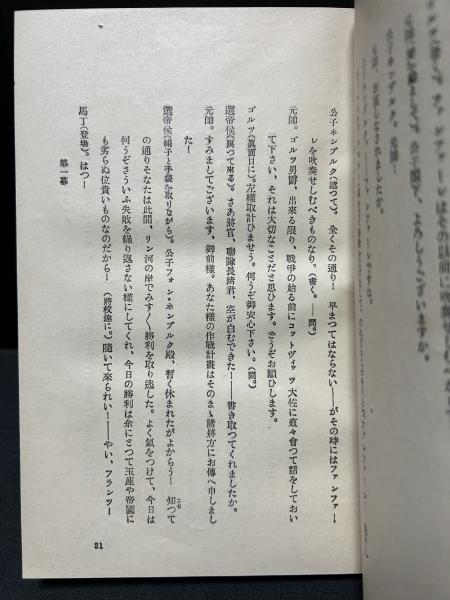 公子ホンブルク（遮つて）。 全くその通り！ 早まつてはならない――がその時にはファンファー
レを吹奏せしむべきものなり。（書く。――間。）
元師。ゴルツ男爵、出來る限り、戰爭の始る前にコットヴィッツ大佐に直々會つて話をしておい
て下さい、それは大切なことだと思ひます。どうぞお願ひします。
ゴルツ（眞面目に）。左樣取計ひませう。何うぞ御安心下さい。（間。）
選帝侯（戻つて來る）。さあ將官、聯隊長諸君、空が白むできた！――書き取つてくれましたか。
元師。すみましてございます、御前様。あなた樣の作戰計畫はそのまゝ諸將方にお傳へ申しまし
た！
選帝侯（帽子と手袋を取りながら）。公子フォン・ホンブルク殿、暫く休まれたがよからう！ 知つて
の通りそなたは此間、リン河の岸でみす〱勝利を取り逃した。よく氣をつけて、今日は
何うぞさういふ失敗を繰り返さない樣にしてくれ、今日の勝利は余にとつて玉座や帝國に
も劣らぬ位貴いものなのだから！ （將校達に。）隨いて來られい！――やい、フランツ―
馬丁（登場）。はつ―
第一幕
81